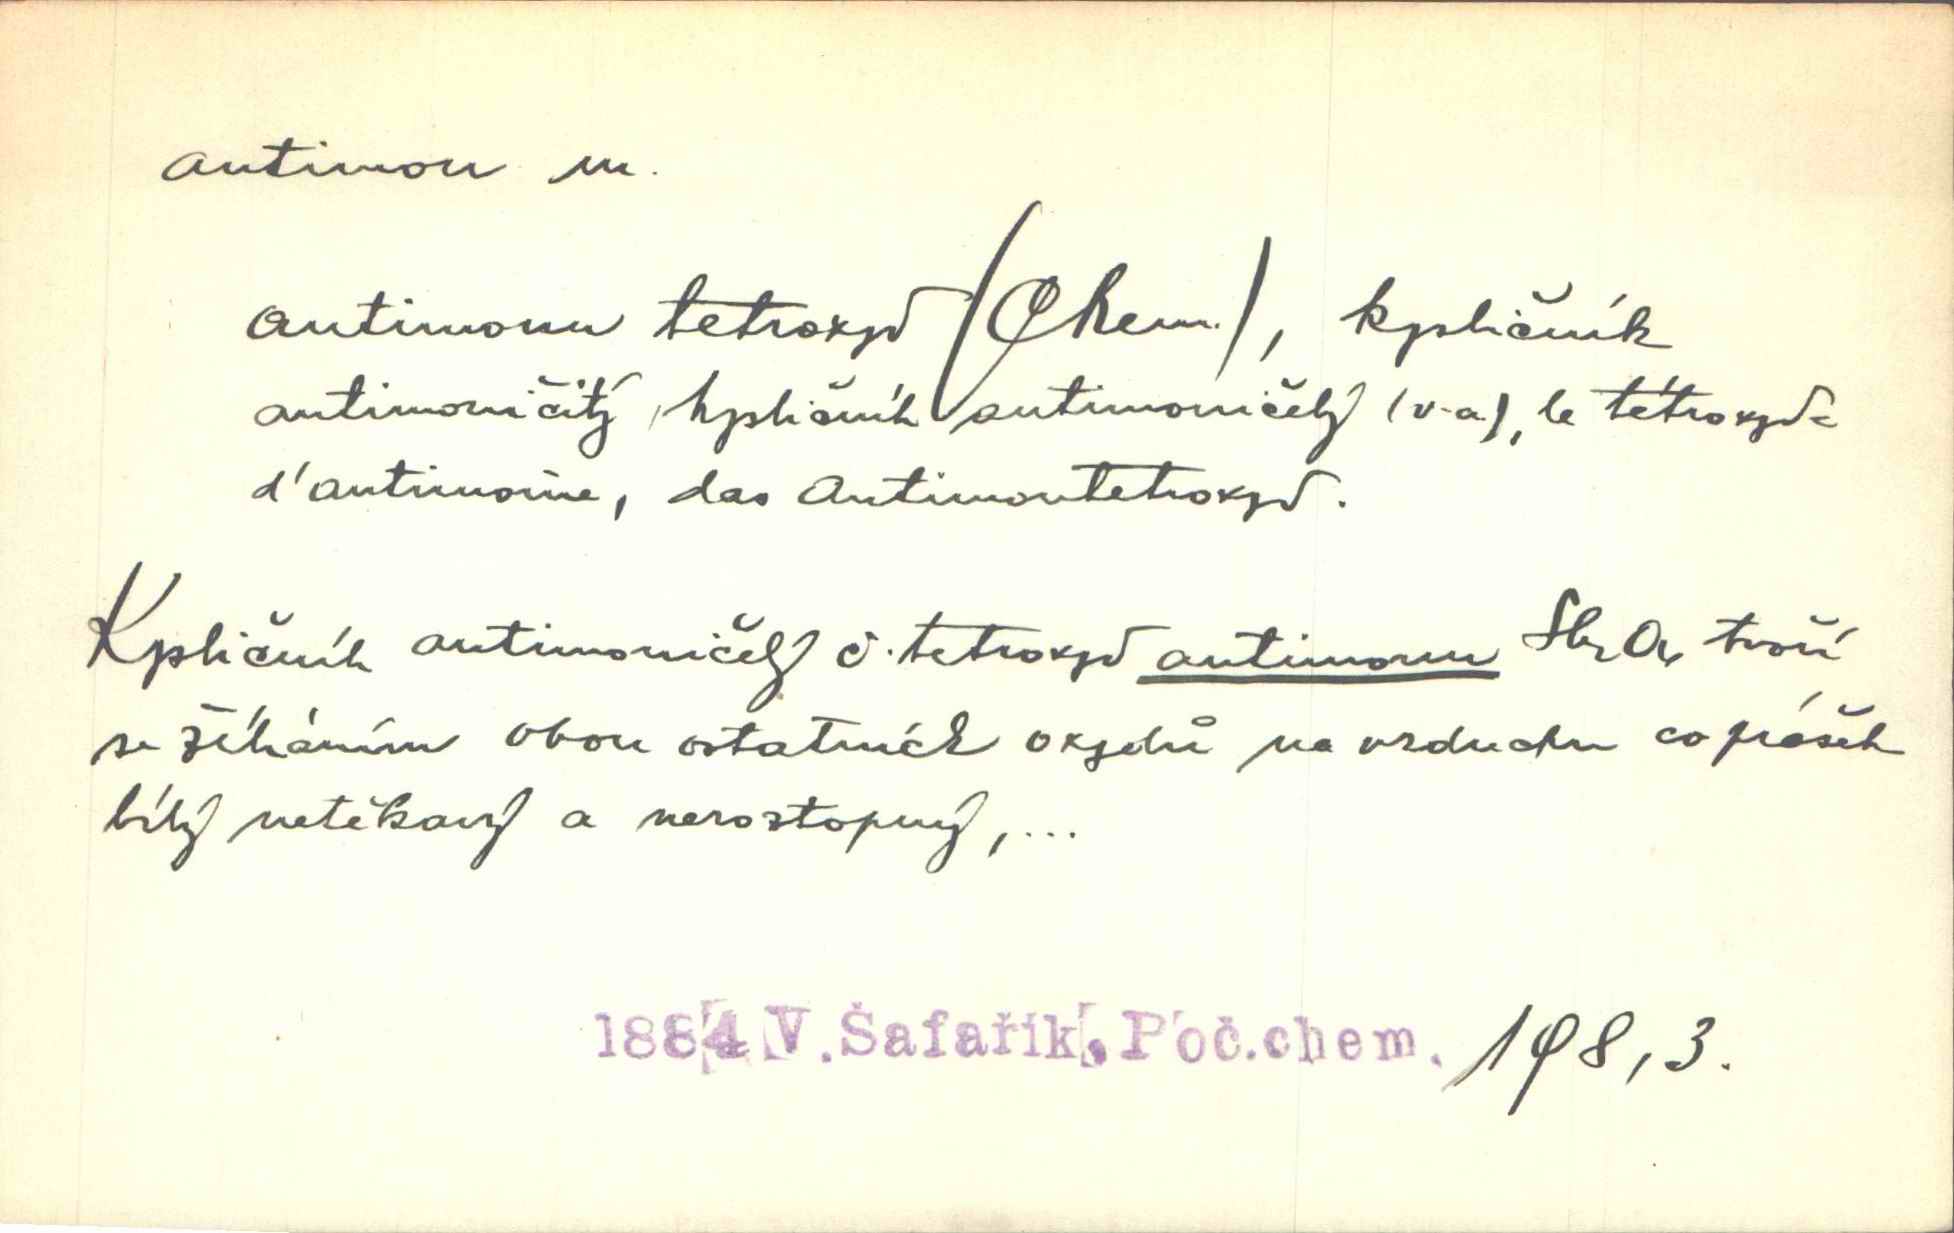 antimon m.
antimonu tetroxyd (Chem.), kysličník
antimoničitý, kysličník antimoničelý (v-a.), le tétroxyde
d'antimoine, das Antimontetroxyd.
Kysličník antimoničelý č. tetroxyd antimonu Sb₂O₄ tvoří
se žíháním obou ostatních oxydů na vzduchu co prášek
bílý netěkavý a neroztopný,...
1884 V. Šafařík, Poč.chem. 198,3.